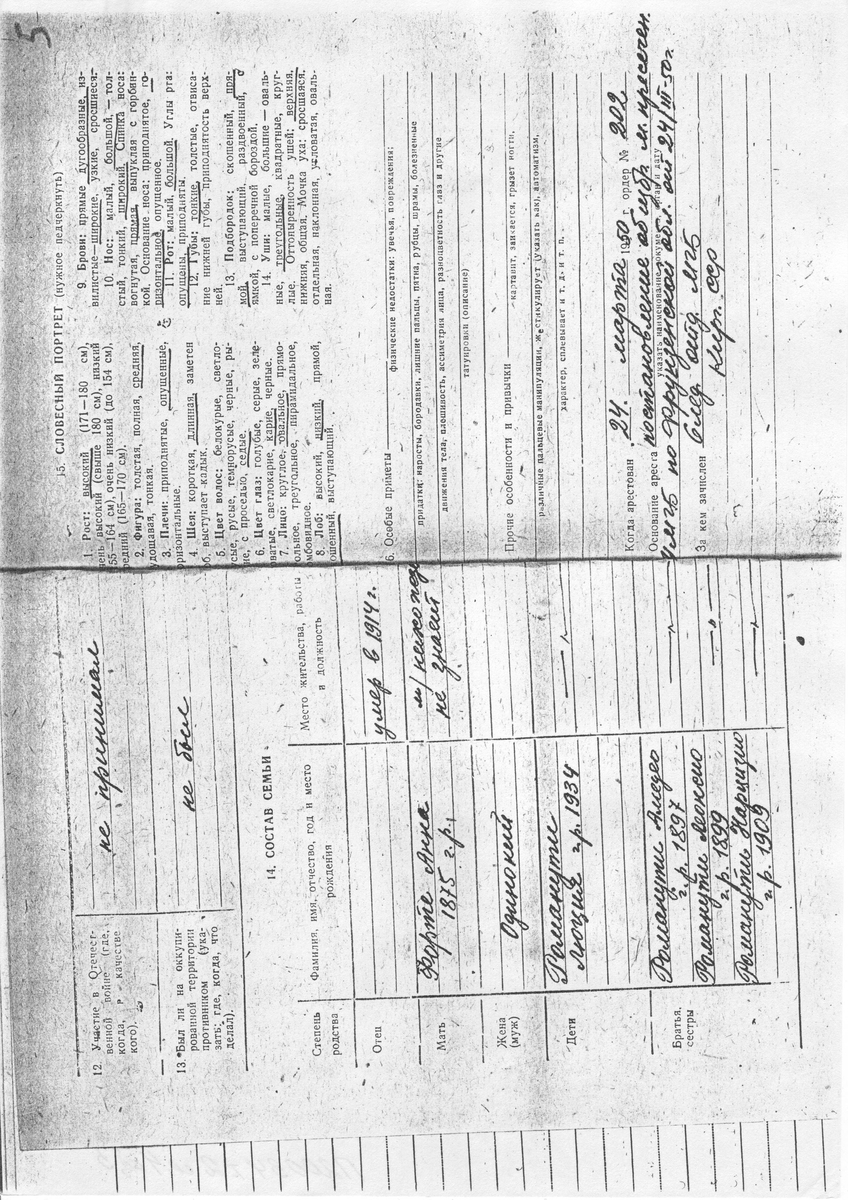 5
12. Участие в Отечест-
венной войне (где,
когда, в качестве
кого).
не принимал
13. Был ли на оккупи-
рованной территории
противником (ука-
зать: где, когда, что
делал).
не был
14. СОСТАВ СЕМЬИ
Степень
родства
Фамилия, имя, отчество, год и место
рождения
Место жительства, работы
и должность
Отец
умер в 1914 г.
Мать
Форте Анна
1875 г.р.
не знает
Жена
(муж)
Одинокий
Дети
Романути
Люция г.р. 1934
— " —
Братья,
сестры
Романути Амедео
г.р. 1897
— " —
Романути
г.р. 1899
— " —
Романути Нарцизио
г.р. 1909
— " —
15. СЛОВЕСНЫЙ ПОРТРЕТ (нужное подчеркнуть)
1. Рост: высокий (171—180 см),
очень высокий (свыше 180 см), низкий
155—164 см), очень низкий (до 154 см),
средний (165—170 см).
2. Фигура: толстая, полная, средняя,
худощавая, тонкая.
3. Плечи: приподнятые, опущенные,
горизонтальные.
4. Шея: короткая, длинная, заметен
зоб, выступает кадык.
5. Цвет волос: белокурые, светло-
русые, русые, темнорусые, черные, ры-
жие, с проседью, седые.
6. Цвет глаз: голубые, серые, зеле-
новатые, светлокарие, карие, черные.
7. Лицо: круглое, овальное, прямо-
угольное, треугольное, пирамидальное,
ромбовидное.
8. Лоб: высокий, низкий, прямой,
скошенный, выступающий.
9. Брови: прямые, дугообразные, из-
вилистые—широкие, узкие, сросшиеся.
10. Нос: малый, большой, — тол-
стый, тонкий, широкий. Спинка носа:
вогнутая, прямая, выпуклая с горбин-
кой. Основание носа: приподнятое, го-
ризонтальное, опущенное.
11. Рот: малый, большой. Углы рта:
опущены, приподняты.
12. Губы: тонкие, толстые, отвиса-
ние нижней губы, приподнятость верх-
ней.
13. Подбородок: скошенный, пря-
мой, выступающий, раздвоенный, с
ямкой, с поперечной бороздой.
14. Уши: малые, большие — оваль-
ные, треугольные, квадратные, круг-
лые. Оттопыренность ушей: верхняя,
нижняя, общая. Мочка уха: сросшаяся,
отдельная, наклонная, угловатая, оваль-
ная.
6. Особые приметы
физические недостатки: увечья, повреждения;
придатки: наросты, бородавки, лишние пальцы, пятна, рубцы, шрамы, болезненные
движения тела, плешивость, ассиметрия лица, разноцветность глаз и другие
татуировки (описание)
Прочие особенности и привычки
картавит, заикается, грызет ногти,
различные пальцевые манипуляции, жестикулирует (указать как), автоматизм,
характер, сплевывает и т. д. и т. п.
Когда арестован 24 марта 1950 г. ордер № 202
Основание ареста постановление об избр. м. пресечен.
указать наименование документа, орган и дату
УМГБ по Фрунзенской обл. от 24/III-50г.
За кем зачислен След. отд. МГБ
Кирг. ССР